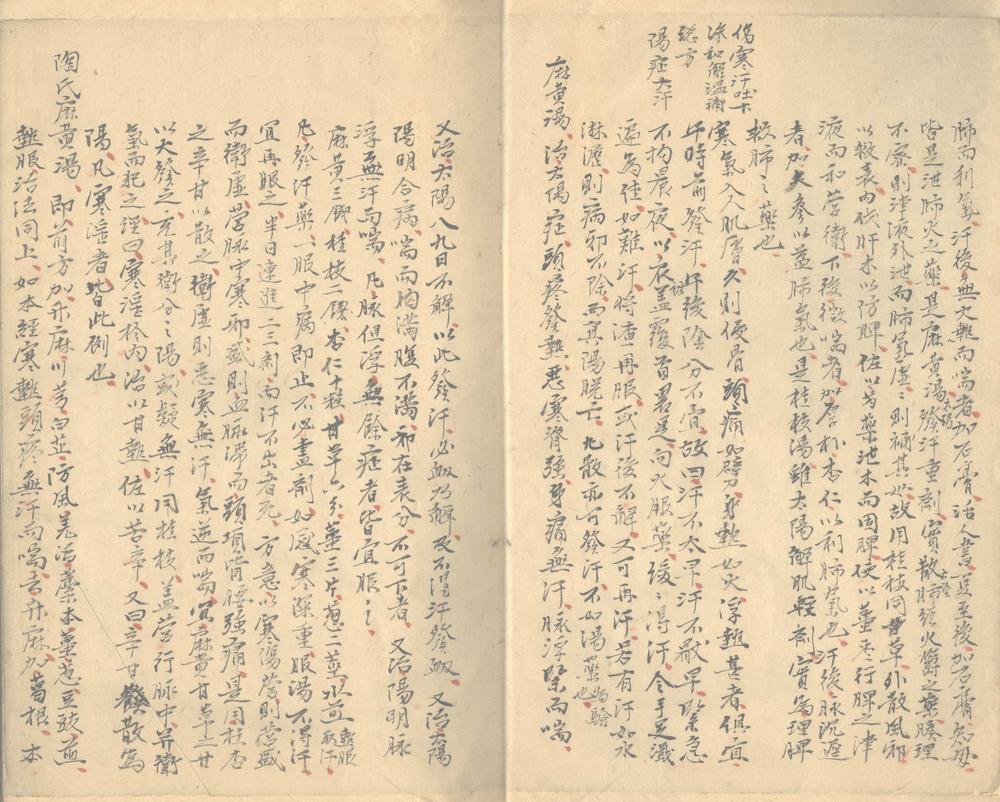 肺而利氣、汗後無大熱而喘者、加石膏、活人、夏至後、加石膏知母、
皆是泄肺火之藥、是麻黃湯太陽發汗重劑、實散肺經火鬱之藥、腠理
不密則津液外泄、而肺氣虛、虛則補其母、故用桂枝同甘草、外散風邪
以救表、內伐肝木以防脾、佐以芍藥、泄木而固脾、使以薑棗、行脾之津
液而和營衛、下後微喘者、加厚朴杏仁、以利肺氣也、汗後脈沉遲
者、加人參以益肺氣也、是桂枝湯雖太陽解肌輕劑、實爲理脾
救肺之藥也
傷寒汗吐下
滲和解溫補
總方
寒氣入人肌膚、久則便骨、頭痛如劈、身熱如火、浮熱甚者、俱宜
午時前發汗、午後陰分不宜、故曰汗不太早、汗不嚴早、緊急
陽症大汗
不拘晨夜、以衣被蓋覆首、署足向火、服藥、緩緩得汗、令手足濈
遍爲佳、如難汗、將渣再服、或汗後不解、又可再汗、若有汗如水
淋漓、則病邪不除、而真陽脫亡、丸散亦可發汗、不如湯藥爲驗也、
麻黃湯、治太陽症頭疼發熱、惡寒脊強、身痛無汗、脈浮緊而喘、
又治太陽八九日不解、以此發汗、必衄乃解、及不得汗發衄、又治太陽
陽明合病、喘而胸滿、腹不滿、邪在表分、不可下者、又治陽明脈
浮、無汗而喘、凡脈但浮、無餘症者、皆宜服之、
麻黃三錢、桂枝二錢、杏仁十粒、甘草六分、薑三片、蔥二莖、水煎熱服取汗
凡發汗藥、一服中病即止、不必盡劑、如感寒深重、服湯不得汗
宜再服之、半日連進二三劑、而汗不出者死、方意以寒傷營、則營盛
而衛虛、營脈中寒邪盛、則血脈滯而頭項背腰強痛、是用桂杏
之辛甘以散之、衛虛則惡寒無汗、氣逆而喘、宜麻黃甘草二甘
以大發之、充其衛分之陽、或疑無汗用桂枝、蓋營行脈中、并衛
氣而犯之、淫曰、寒淫於內、治以甘熱、佐以苦辛、又曰、辛甘發散爲
陽、凡寒淫者、皆此例也、
陶氏麻黃湯、即前方加升麻川芎白芷、防風羌活藁本、薑蔥豆豉煎、
熱服、治法同上、如本經寒熱、頭疼無汗而喘、去升麻、加葛根、本